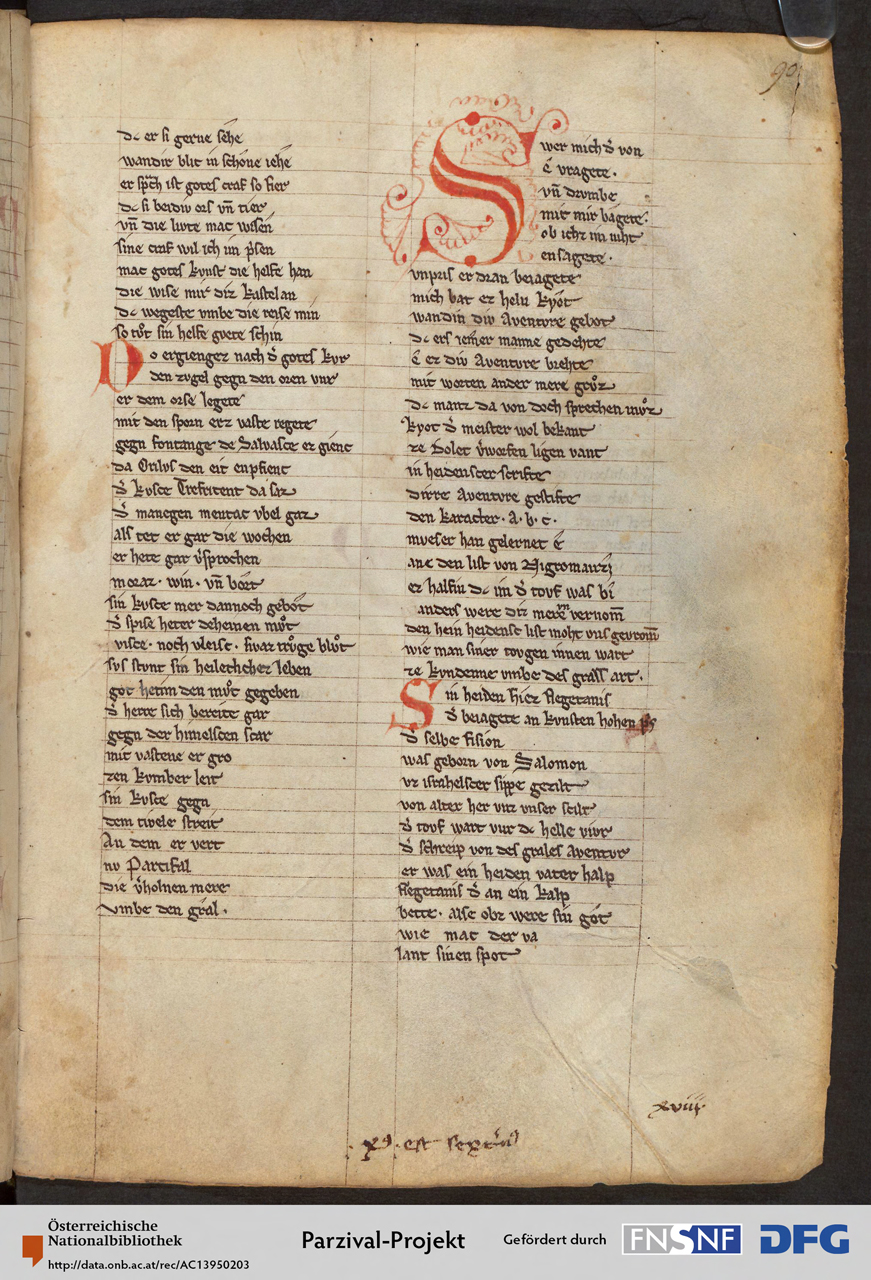 dc er si gerne sehe
wandir blic in schone iehe
er sprach ist gotes craf so fier
dc si beidiv ors vn̄ tier
vn̄ die livte mac wisen
sine craf wil ich im p̄sen
mac gotes kvnst die helfe han
die wise mir diz kastelan
dc wegeste vmbe die reise min
so tvͦt sin helfe gvete schin
Do ergienger nach dˀ gotes kvr
den zvgel gegn den oren vur
er dem orse legete
mit den sporn erz vaste regete
gegn fontange de Salvasce er gienc
da Orilvs den eit enpfienc
dˀ kvsce Trefrizent da saz
dˀ manegen mentac vbel gaz
als tet er gar die wochen
er hete gar vˀsprochen
moraz · win · vn̄ brot
sin kvsce mer dannoch gebot
dˀ spise heter deheinen mvͦt
visce · noch vleisc · swaz trvͦge blvͦt
svs stvnt sin heileclicher leben
got hetim den mvͦt gegeben
dˀ herre sich bereite gar
gegn der himelscen scar
mit vastene er gro
zen kvmber leit
sin kvsce gegn
dem tivele streit
An dem er vert
nv Parcifal
die vˀholnen mere
vmbe den gral ·
Swer mich dˀ von
e vragete ·
vn̄ drvmbe
mit mir bagete ·
ob ichz im niht
ensagete ·
vnpris er dran beiagete
mich bat ez heln kyot
wandin div Aventvre gebot
dc ers iemer manne gedehte
e ez div Aventvre brehte
mit worten ander mere grvͦz
dc manz da von doch sprechen mvͦz
kyot dˀ meister wol bekant
ze Dolet vˀworfen ligen vant
in heidenscer scrifte
dirre Aventvre gestifte
den karacter · a · b · c ·
mveser han gelernet e
ane den list von Nigromanzi
ez half in dc im dˀ tovf was bi
anders were diz mere nv̄ vernom̄
den hein heidensc list moht vns gevrom̄
wie man siner tovgen innen wart
ze kvndenne vmbe des grals art ·
Sin heiden hiez flegetanis
dˀ beiagete an kvnsten hohen p̄s
dˀ selbe fision
was geborn von Salomon
vz israhelscer sippe gezilt
von alter her vnz vnser scilt
dˀ tovf wart vur dc helle vivr
dˀ schreip von des grales Aventvr
er was ein heiden vater halp
flegetanis dˀ an ein kalp
bette · alse obz were sin got
wie mac der va
lant sinen spot
xviiij·
·x9· est sexternus
90
Österreichische
Nationalbibliothek
http://data.onb.ac.at/rec/AC13950203
Parzival-Projekt
Gefördert durch
FNSNF
DFG